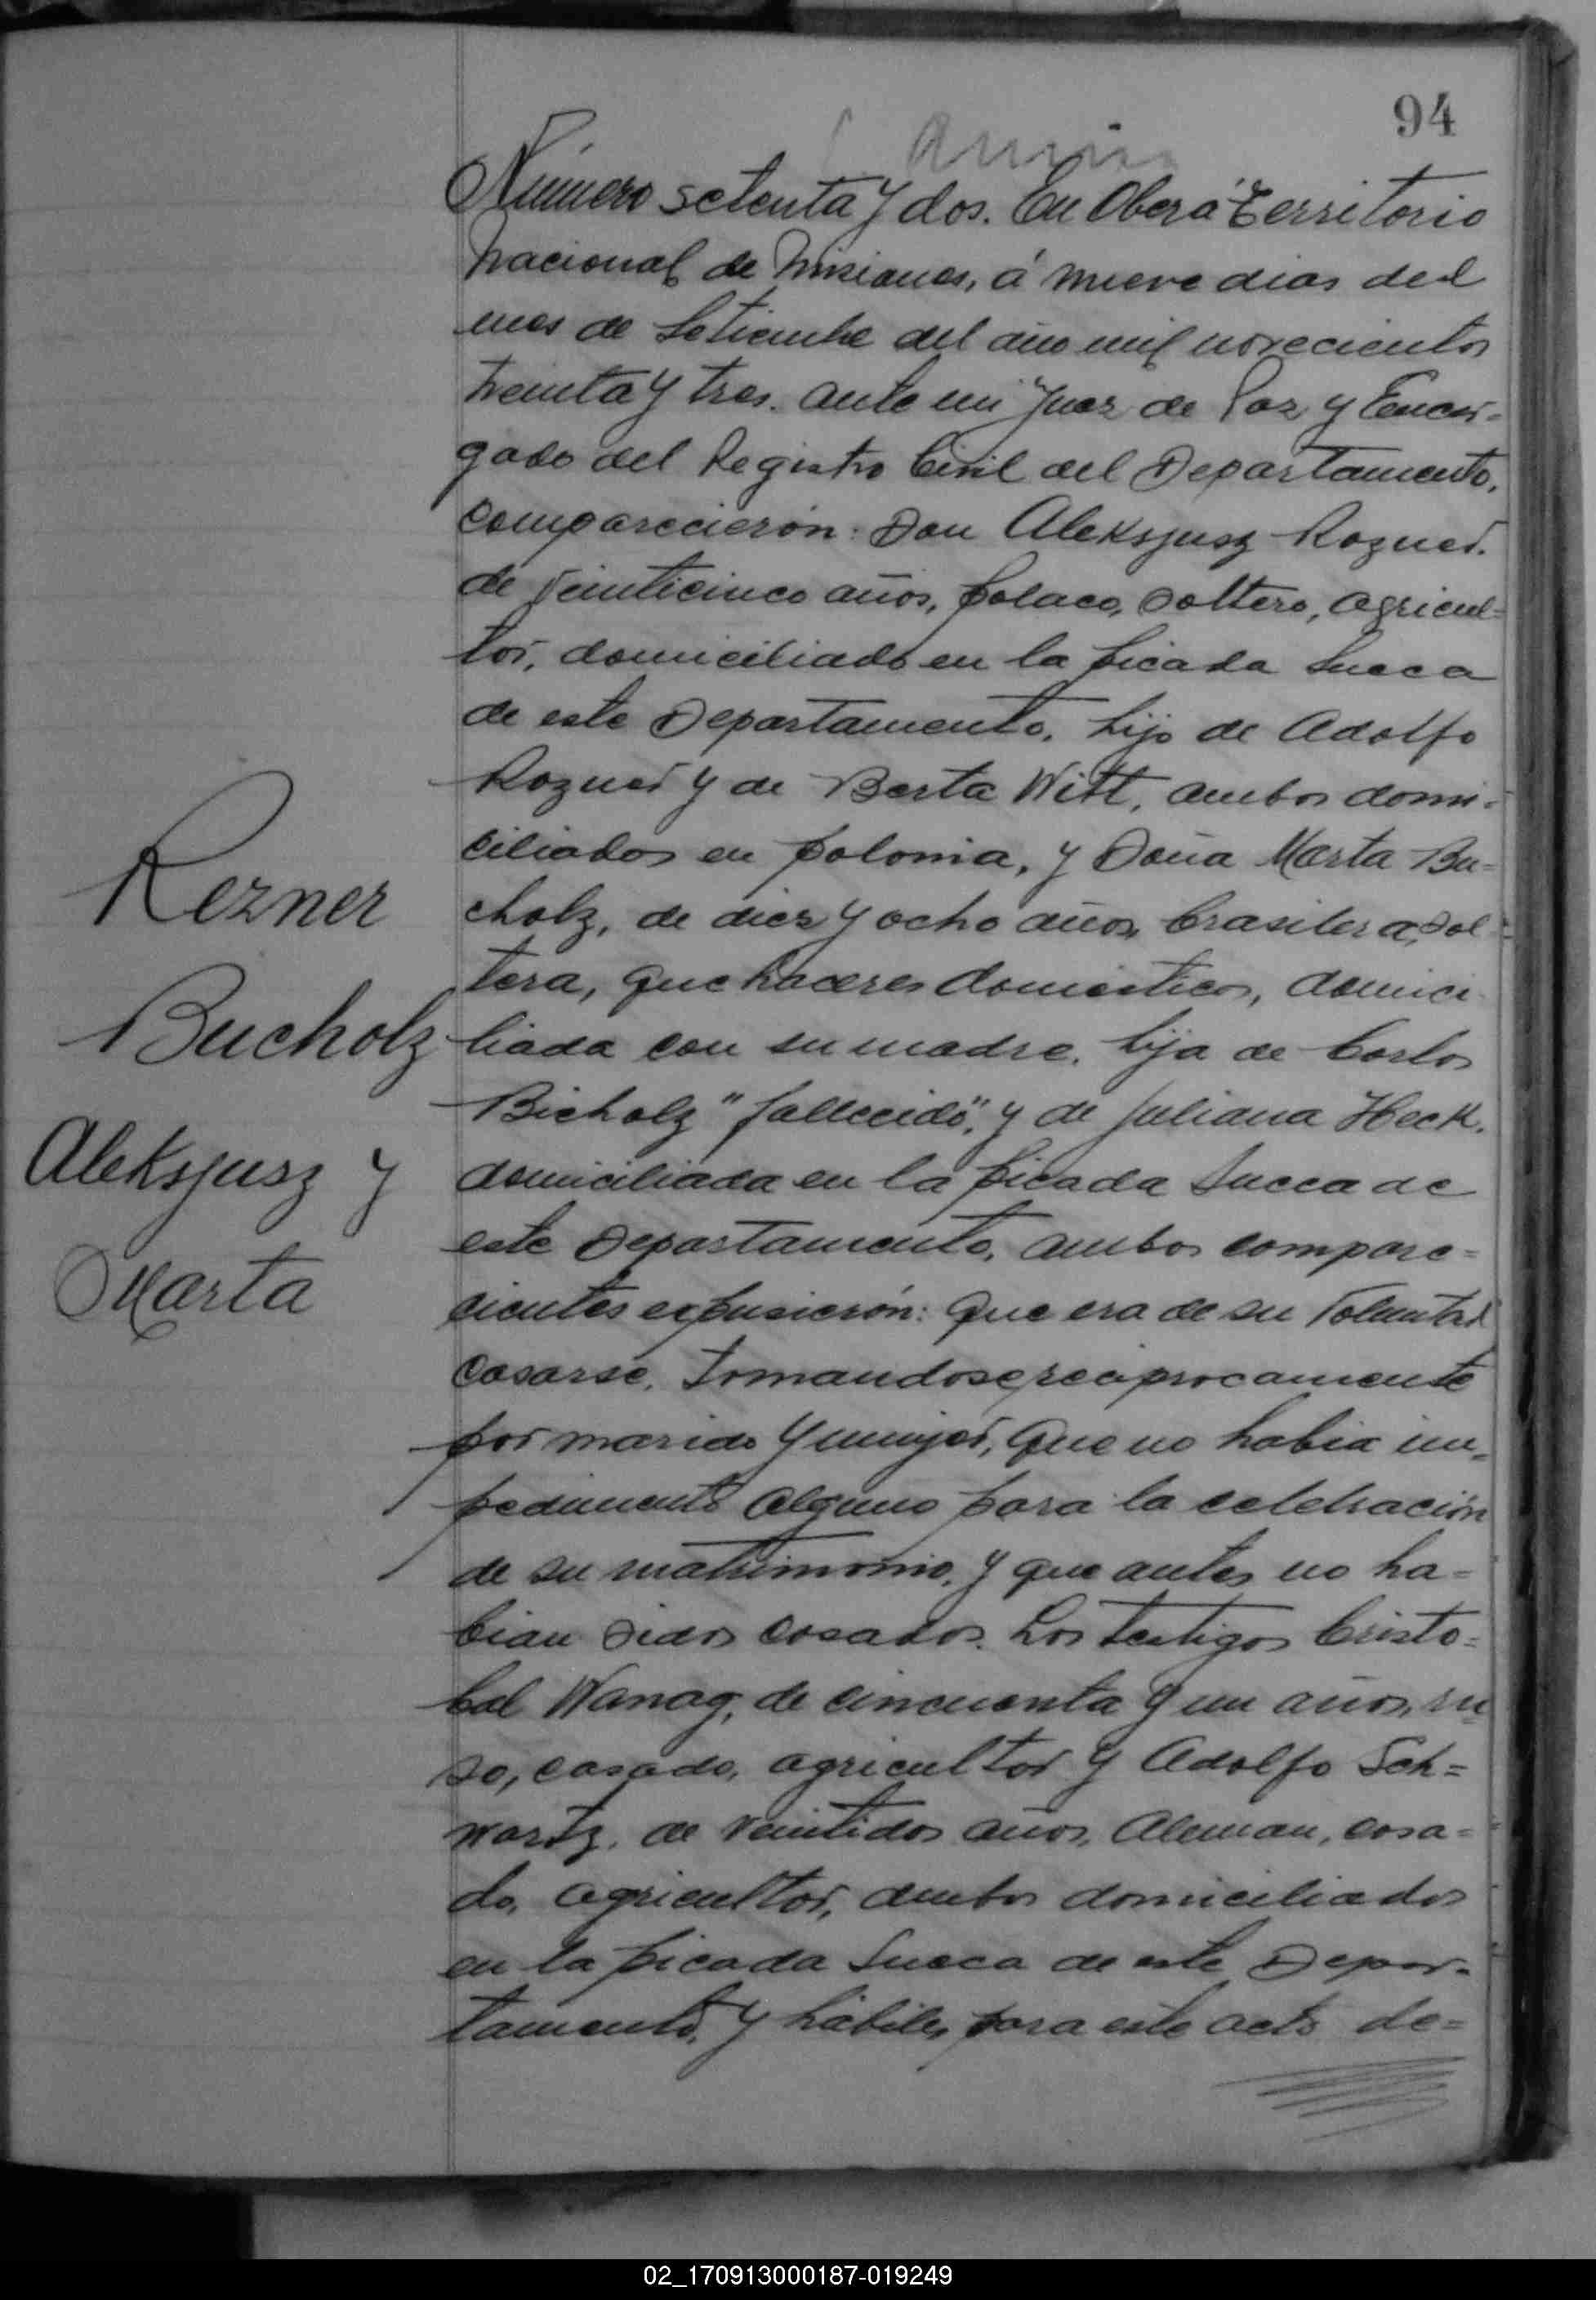 94
Número setenta y dos. En Oberá Territorio
Nacional de Misiones, á nueve dias del
mes de Setiembre del año mil novecientos
treinta y tres. ante mi Juez de Paz y Encar-
gado del Registro Civil del Departamento,
comparecierón: Don Aleksjusz Rozner.
de veinticinco años, polaco, soltero, agricul-
tor, domiciliado en la picada Sueca
de este Departamento, hijo de Adolfo
Rozner y de Berta Witt, ambos domi-
ciliados en polonia, y Doña Marta Bu-
cholz, de diez y ocho años, brasilera, sol-
tera, quehaceres domesticos, domici
liada con su madre, hija de Carlos
Bicholz "fallecido", y de Juliana Heck,
domiciliada en la picada Sueca de
este Departamento, ambos compare-
cientes expusierón: que era de su voluntad
casarse, tomandose reciprocamente
por marido y mujer, que no habia im-
pedimento alguno para la celebración
de su matrimonio, y que antes no ha-
bian sidos casados. Los testigos Cristo-
bal Wanag, de cincuenta y un años, ru
so, casado, agricultor y Adolfo Sch-
wartz, de veintidos años, Aleman, casa-
do, agricultor, ambos domiciliados
en la picada Sueca de este Depar-
tamento, y habiles para este acto de-
Rezner
Bucholz
Aleksjusz y
Marta
02_170913000187-019249